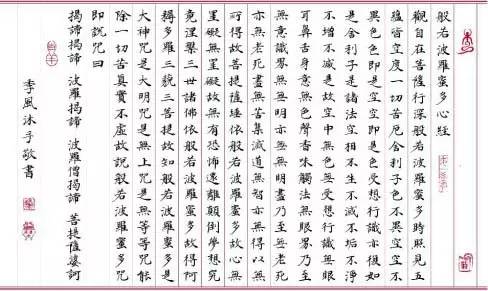 般若波羅蜜多心經
觀自在菩薩行深般若波羅蜜多時照見五
蘊皆空度一切苦厄舍利子色不異空空不
異色色即是空空即是色受想行識亦復如
是舍利子是諸法空相不生不滅不垢不淨
不增不減是故空中無色無受想行識無眼
耳鼻舌身意無色聲香味觸法無眼界乃至
無意識界無無明亦無無明盡乃至無老死
亦無老死盡無苦集滅道無智亦無得以無
所得故菩提薩埵依般若波羅蜜多故心無
罣礙無罣礙故無有恐怖遠離顛倒夢想究
竟涅槃三世諸佛依般若波羅蜜多故得阿
耨多羅三藐三菩提故知般若波羅蜜多是
大神咒是大明咒是無上咒是無等等咒能
除一切苦真實不虛故說般若波羅蜜多咒
即說咒曰
揭諦揭諦 波羅揭諦 波羅僧揭諦 菩提薩婆訶
季風沐手敬書